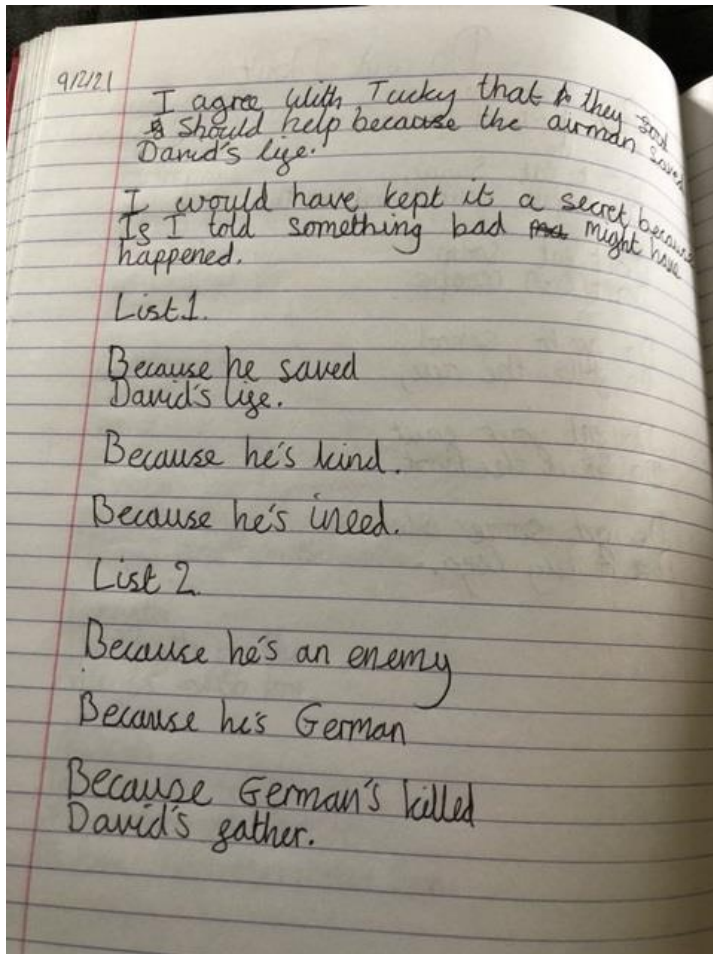 9/2/21
I agree with Tucky that they
should help because the airman saved
David's life.
I would have kept it a secret because
If I told something bad might have
happened.
List 1.
Because he saved
David's life.
Because he's kind.
Because he's ineed.
List 2
Because he's an enemy
Because he's German
Because German's killed
David's father.